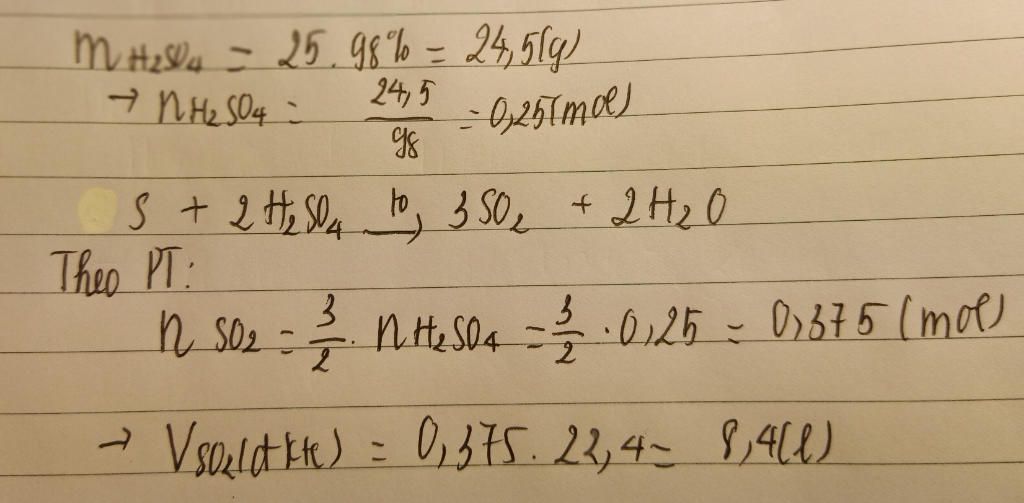 mH₂SO₄ = 25 . 98% = 24,5(g)
→ nH₂SO₄ = 24,5/98 = 0,25(mol)
S + 2H₂SO₄ t°→ 3SO₂ + 2H₂O
Theo PT:
nSO₂ = 3/2 . nH₂SO₄ = 3/2 . 0,25 = 0,375 (mol)
→ VSO₂(đktc) = 0,375 . 22,4 = 8,4(l)